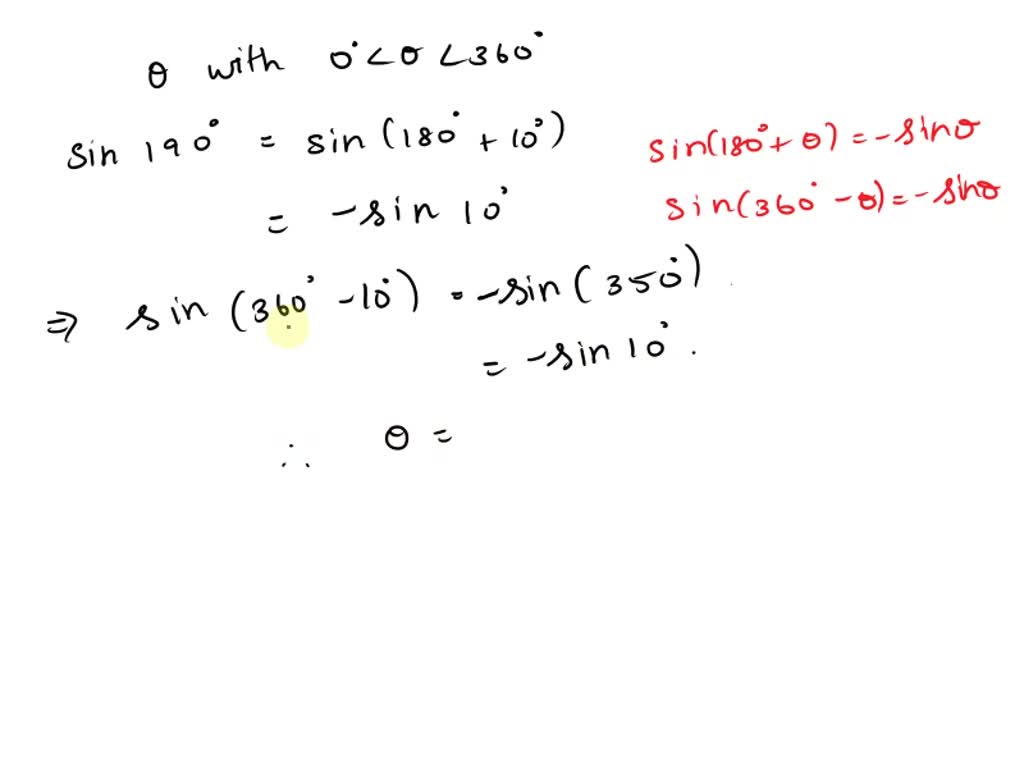 θ with 0° < θ < 360°
sin 190° = sin(180° + 10°)
sin(180° + θ) = -sinθ
= -sin 10°
sin(360° - θ) = -sinθ
⇒ sin(360° - 10°) = -sin(350°)
= -sin 10°.
∴ θ =